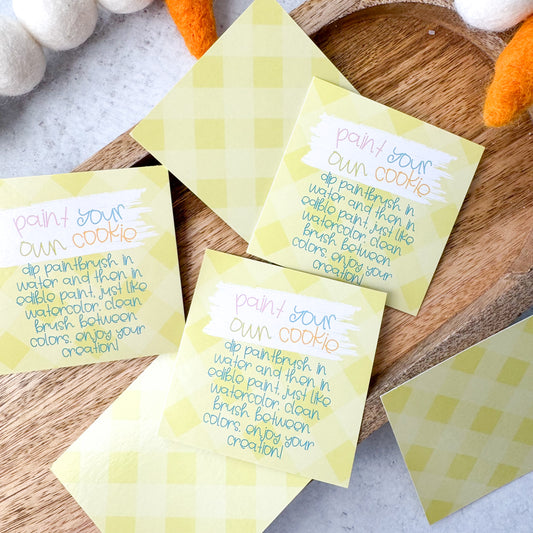 paint your
own cookie
dip paintbrush in
water and then in
edible paint, just like
watercolor. clean
brush between
colors. enjoy your
creation!
paint your
own cookie
dip paintbrush in
water and then in
edible paint, just like
watercolor. clean
brush between
colors. enjoy your
creation!
paint your
own cookie
dip paintbrush in
water and then in
edible paint, just like
watercolor. clean
brush between
colors. enjoy your
creation!